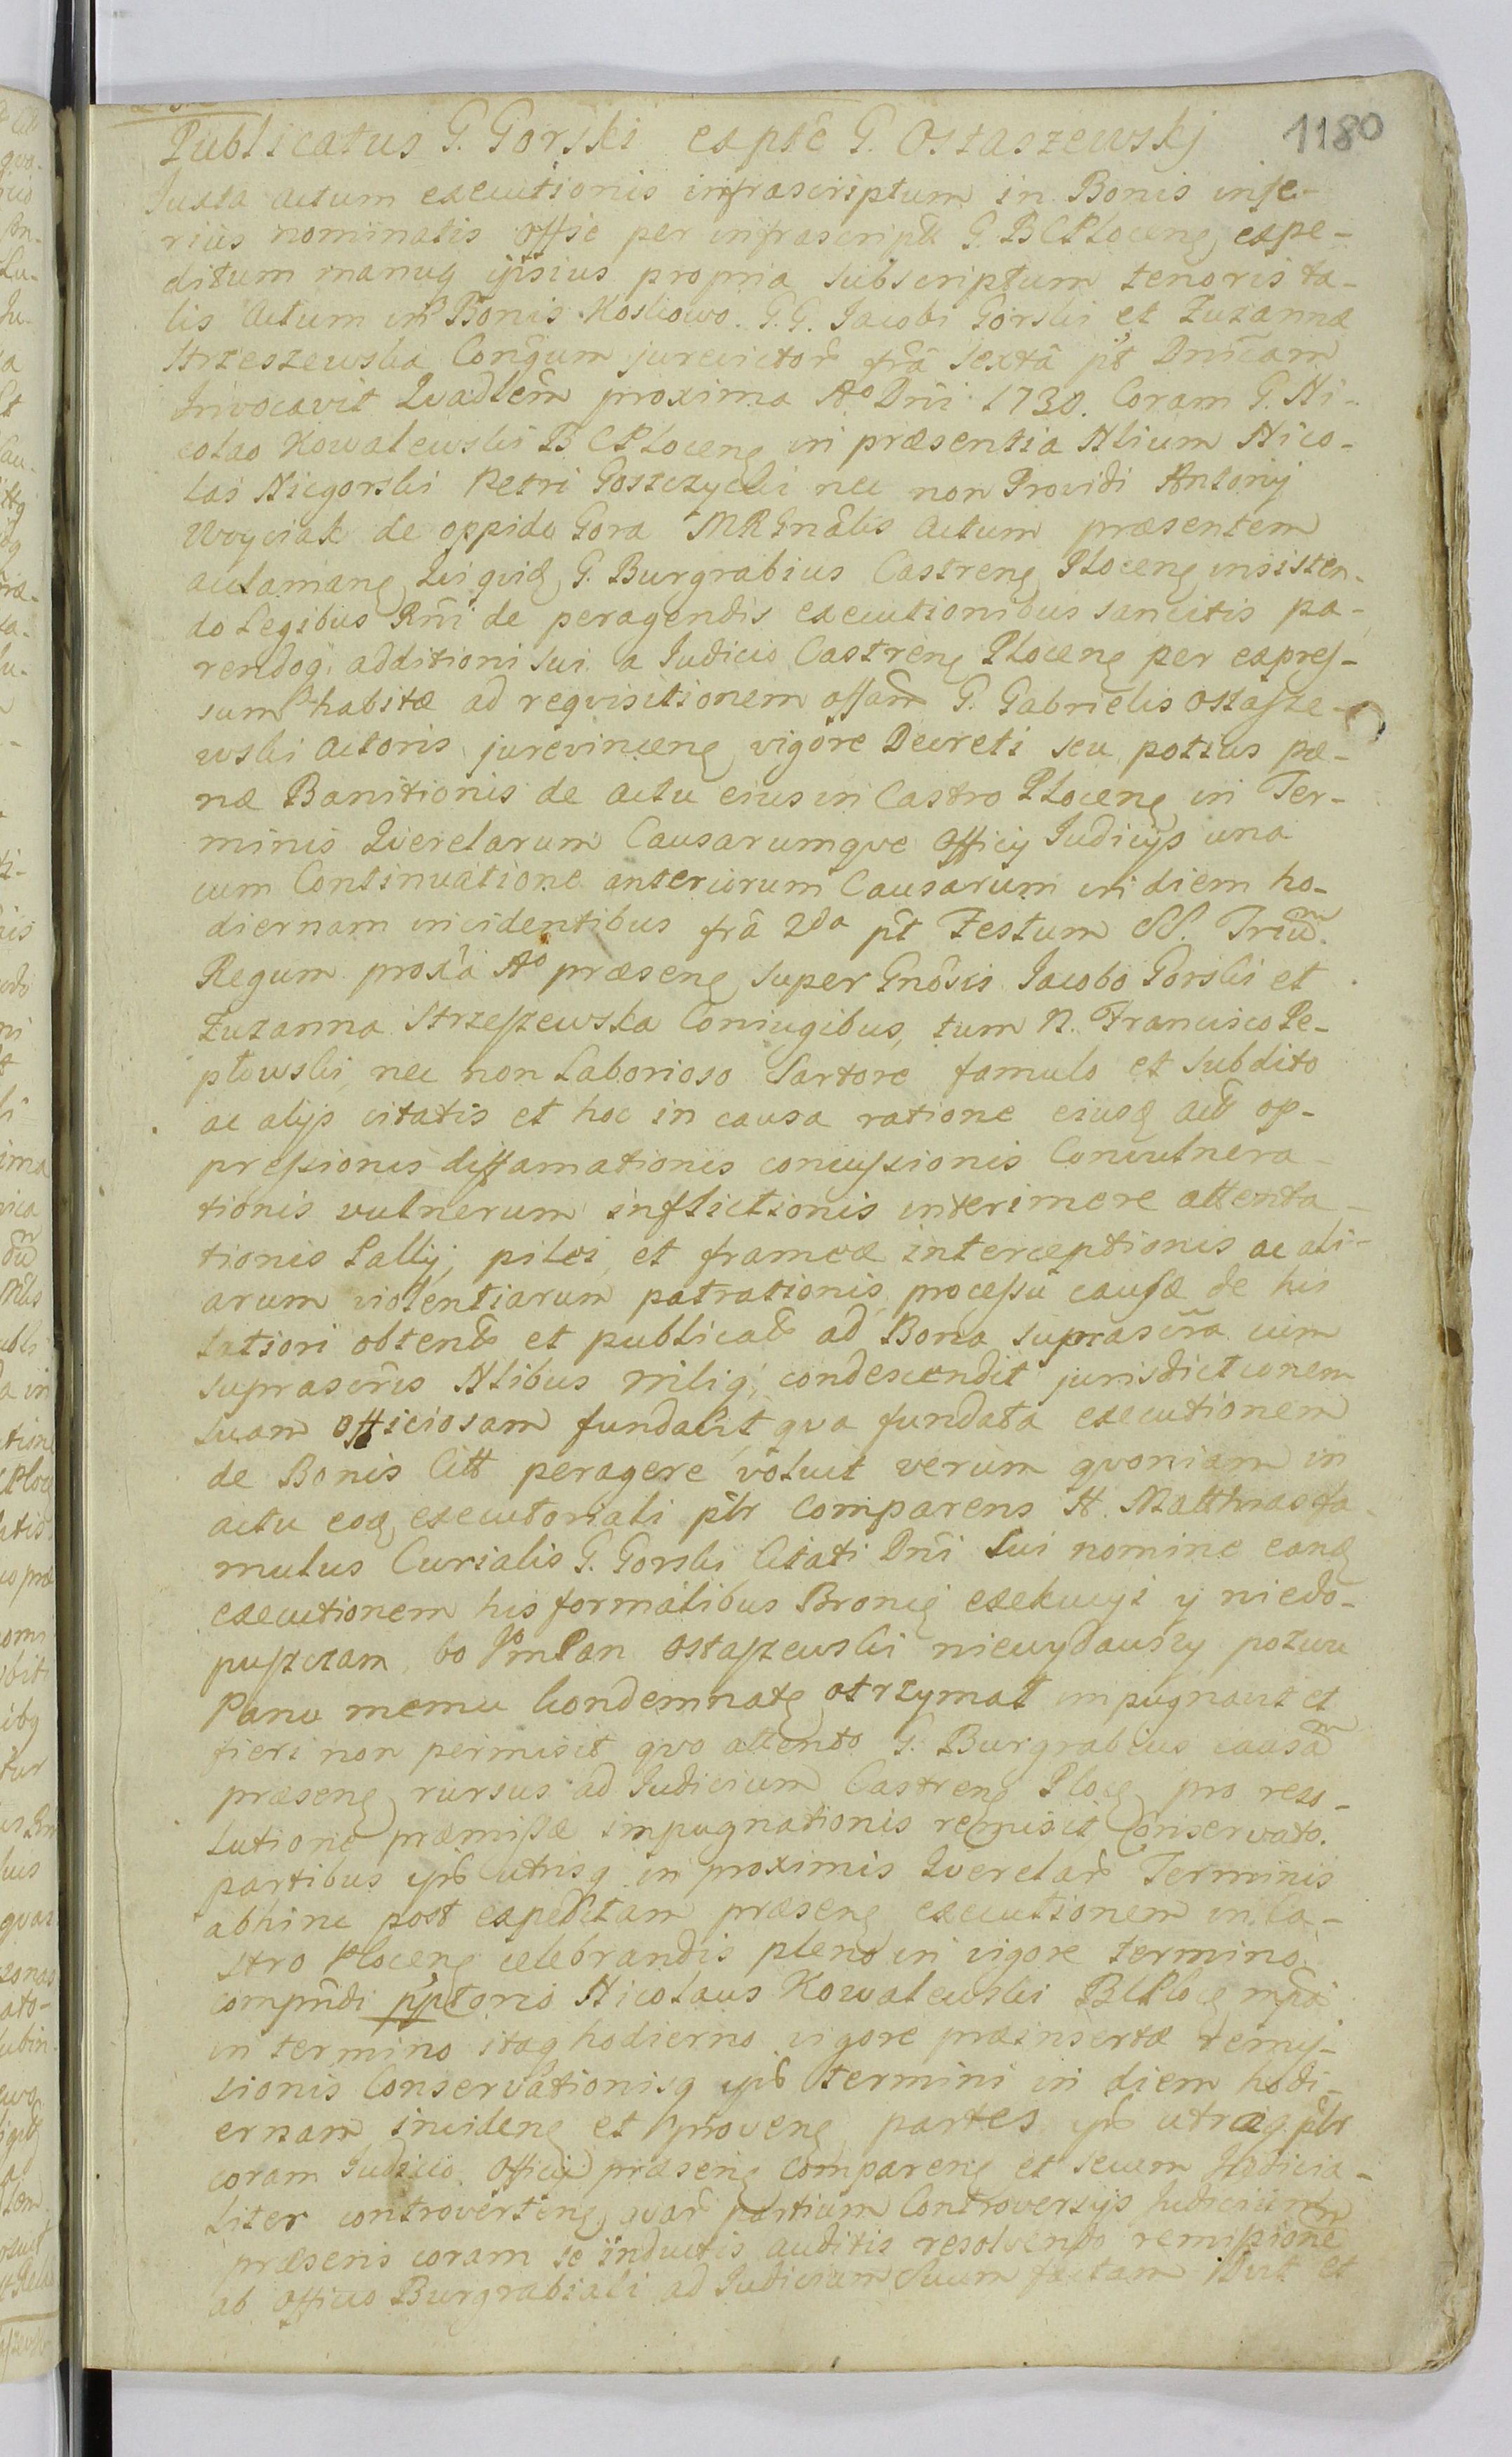 1180
Publicatus G. Gorski expte G. Ostaszewskj
Juxta actum executionis infrascriptum in Bonis infe-
rius nominatis offse per infrascript G. BCPlocen expe-
ditum manuq ipsius propria subscriptum tenoris ta-
lis Actum in Bonis Kosliowo. G.G. Jacobi Gorski et Zuzannæ
Strzeszewska Conĝum jurevictor frâ sextâ pt Dnîcam
Invocavit Qvadlem proxima Ao Dni 1730. Coram G. Ni-
colao Kowalewski B CPlocen in præsentia Nlium Nico-
lai Niegorski Petri Goszczycki nec non Providi Antonij
Woyciak de oppido Gora MRGnâlis actum præsentem
aclaman Qvi qvid G. Burgrabius Castren Plocen insisten-
do Legibus Rni de peragendis executionibus sancitis pa-
rendoq additioni sui a Judicio Castren Plocen per expres-
sum habitæ ad reqvisitionem G. Gabrielis Ostasze-
wski Actoris jurevincen vigore Decreti seu potius pæ-
næ Banitionis de actu eius in Castro Plocen in Ter-
minis Qverelarum Causarumqve Officij Judicijs una
cum Continuatione anteriorum Causarum in diem ho-
diernam incidentibus frâ 2da pt Festum SS. Trium
Regum proxâ Ao præsen super Gnôsis Jacobo Gorski et
Zuzanna Strzeszewska Coniugibus, tum N. Francisco Pe-
plowski nec non Laborioso Sartore famulo et subdito
ac alijs citatis et hoc in causa ratione eiusd act op-
pressionis diffamationis concussionis Convulnera-
tionis vulnerum inflictionis interimere attenta-
tionis Pallij, pilei, et frameæ interceptionis ac ali-
arum violentiarum patrationis processu causæ de his
latiori obtent et publicat ad Bona suprascra cum
suprascris Nlibus Mrliq condescendit jurisdictionem
suam officiosam fundavit qva fundata executionem
de Bonis Citt peragere voluit verum qvoniam in
actu eod executoriali pltr comparens N. Matthias fa-
mulus Curialis G. Gorski Citati Dni sui nomine eand
executionem his formalibus Bronię exekucyi y niedo-
puszczam, bo JmPan Ostaszewski niewydawszy pozwu
Panu memu kondemnatę otrzymał impugnavit et
fieri non permisit qvo attento G. Burgrabius causam
præsen rursus ad Judicium Castren Ploc pro reso-
lutione præmissæ impugnationis remisit Conservato
partibus ipis utrisq in proximis Qverelar Terminis
abhinc post expeditam præsen executionem in Ca-
stro Plocen celebrandis pleno in vigore termino
comprndi pptorio Nicolaus Kowalewski BCPloc mpa
in termino itaq hodierno vigore præinsertæ remis-
sionis Conservationisq ipis termini in diem hodi-
ernam inciden et proven partes ips utraq pltr
coram Judicio Officij præsen comparen et secum Judicia-
liter controverten, qvar partium Controversijs Judicium
præsens coram se inductis auditis resolvendo remissionem
ab Officio Burgrabiali ad Judicium suum factam et